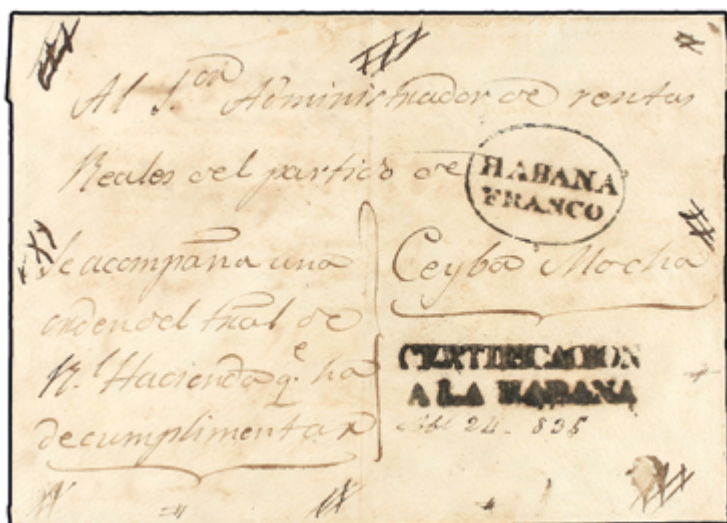 Al S.ᵒʳ Administrador de rentas
Reales del partido de
HABANA
FRANCO
Se acompaña una
orden del tral de
R.ˡ Hacienda q.ᵉ ha
de cumplimentar
Ceyba Mocha
CERTIFICACION
A LA HABANA
24. 835